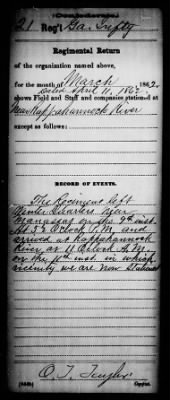 (Confederate.)
21 Reg't Ga. Infty
Regimental Return
of the organization named above,
for the month of March 1862.
Dated April 11, 1862
above Field and Staff and companies stationed at
Near Rappahannock River
except as follows:
RECORD OF EVENTS.
The Regiment left
Winter Quarters near
Manassas on the 9th inst.
At 5½ O'Clock P.M. and
arrived at Rappahannock
River at 11 O'Clock A.M.
on the 11th inst. in which
vicinity we are now Stationed
Copyist.